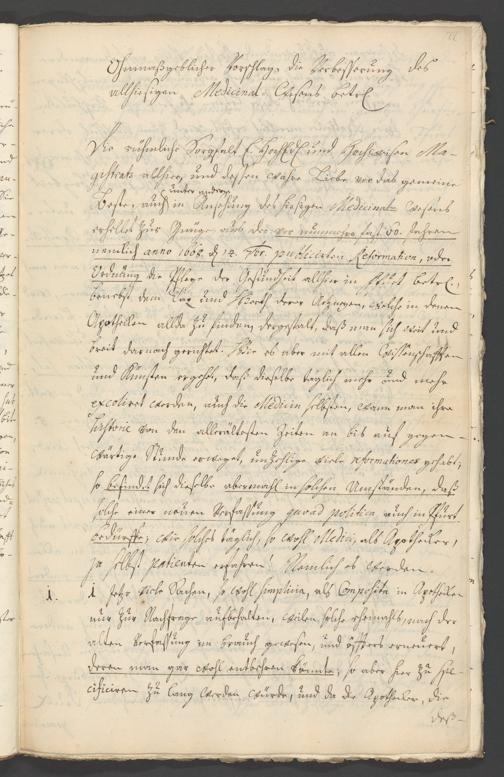 22
Ohnmaßgeblicher Vorschlag, die Verbesserung des
allhiesigen Medicinal-Wesens betrl
Die rühmliche Sorgfalt und Hochweisen Ma-
gistrats allhier, und dessen wahre Liebe vor das gemeine
Beste, auch unter andern in Ansehung des hiesigen Medicinal-Wesens
erhellet zur Gnüge aus der vor nunmehro fast 60. Jahren
nemlich anno 1668. d. 14. publicirten Reformation, oder
Ordnung die Pflege der Gesundheit allhier in betrl,
benebst dem Tax und Werth derer Artzneyen, welche in denen
Apothecken allda zu finden, dergestalt, daß man sich weit und
breit darnach gerichtet. Wie es aber mit allen Wissenschafften
und Künsten ergehet, daß dieselbe täglich mehr und mehr
excoliret werden, auch die Medicin selbsten, wann man ihre
Historie von den allerältesten Zeiten an bis auf gegen-
wärtige Stunde erweget, unzehlige viele reformationes gehabt,
so befindet sich dieselbe abermahl in solchen Umständen, daß
solche einer neuen Verfassung quoad politica auch in
bedürffe, wie solches täglich, so wohl Medici, als Apothecker,
ja selbst patienten erfahren. Nemlich es werden
1. 1. Sehr viele Sachen, so wohl simplicia, als Composita in Apothecken
nur zur Nachfrage aufbehalten, weilen solche ehemahls, nach der
alten Verfassung im brauch gewesen, und öffters erneuert,
deren man gar wohl entbehren könte, so aber hier zu spe-
cificiren zu lang werden würde, und da die Apothecker, die
deß-